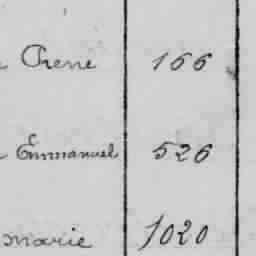 Chene 166
Emmanuel 526
marie 1020